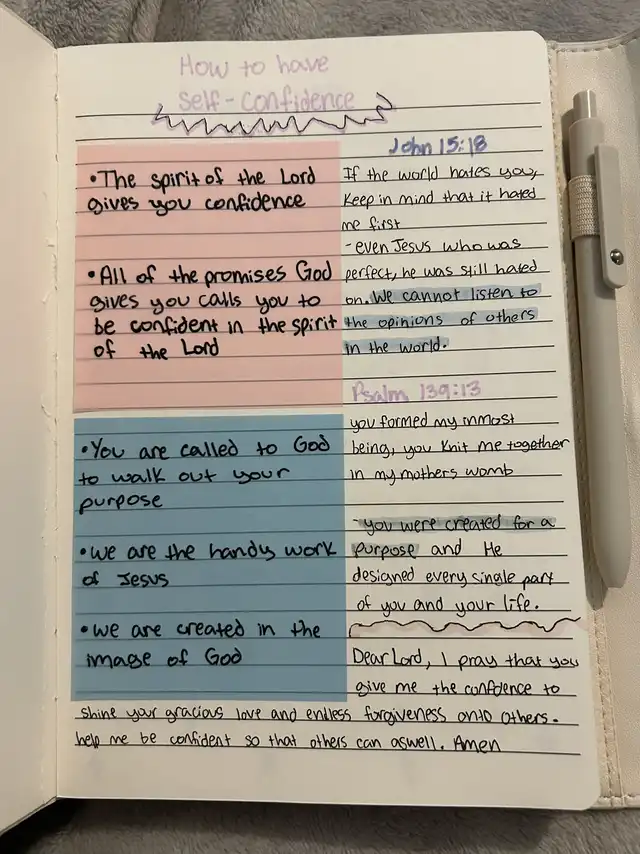 How to have
Self-Confidence
•The spirit of the Lord
gives you confidence
•All of the promises God
gives you calls you to
be confident in the spirit
of the Lord
•You are called to God
to walk out your
purpose
•we are the handy work
of Jesus
•we are created in the
image of God
John 15:18
If the world hates you,
Keep in mind that it hated
me first
-even Jesus who was
perfect, he was still hated
on. We cannot listen to
the opinions of others
in the world.
Psalm 139:13
you formed my inmost
being, you knit me together
in my mothers womb
-you were created for a
purpose and He
designed every single part
of you and your life.
Dear Lord, I pray that you
give me the confidence to
shine your gracious love and endless forgiveness onto others.
help me be confident so that others can aswell. Amen